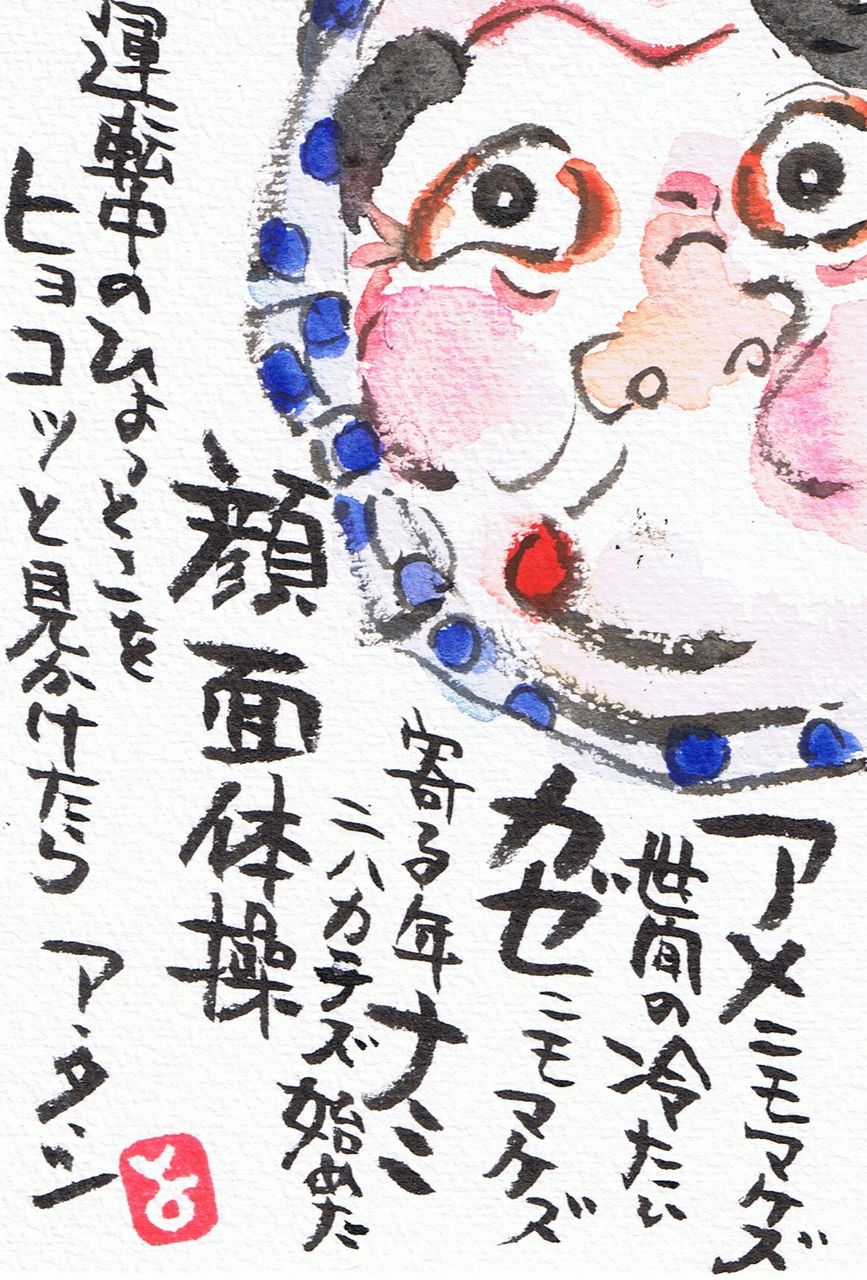 アメニモマケズ
世間の冷たい
カゼニモマケズ
寄る年ナミ
ニハカテズ始めた
顔面体操
運転中のひょっとこを
ヒョコッと見かけたら
ア・タ・シ